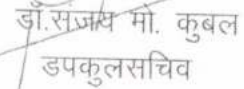 डॉ.संजय मो. कुबल
डपकुलसचिव